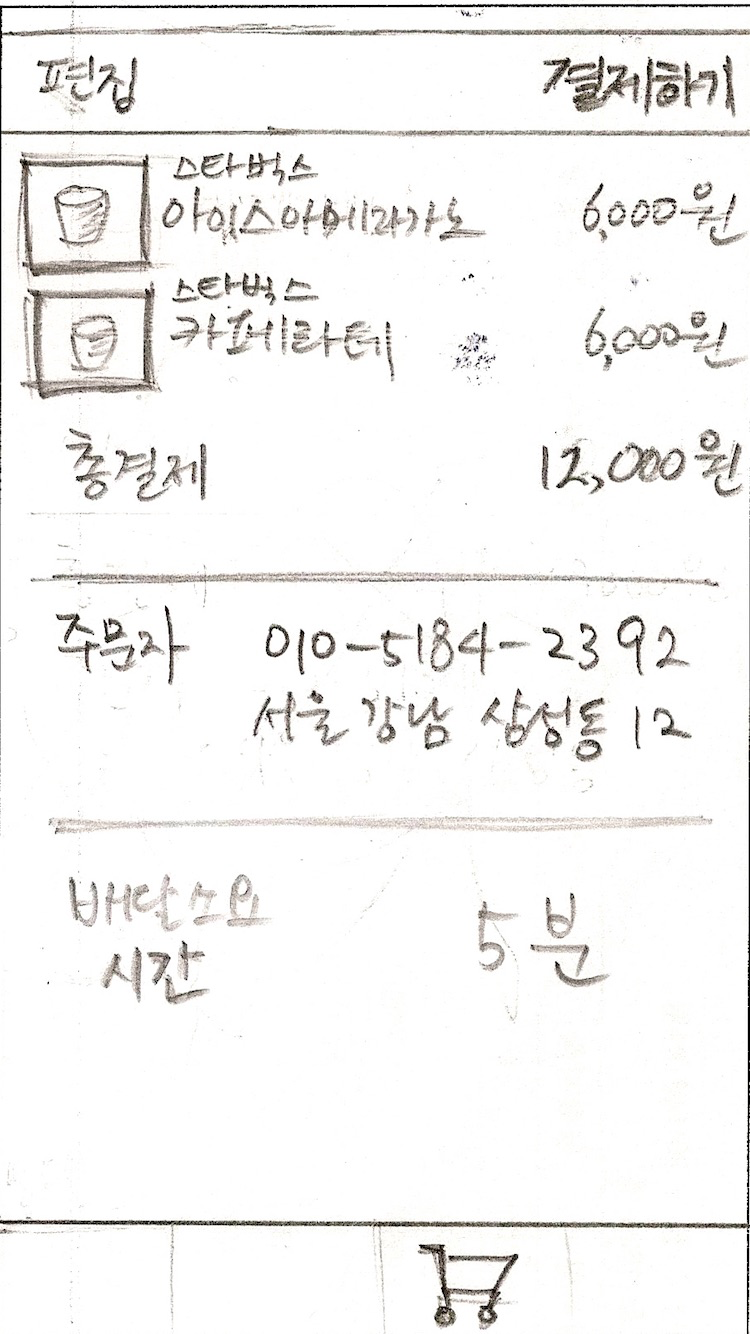 편집 결제하기
스타벅스
아이스아메리카노 6,000원
스타벅스
카페라떼 6,000원
총결제 12,000원
주문자 010-5184-2392
서울 강남 삼성동 12
배달소요
시간 5분